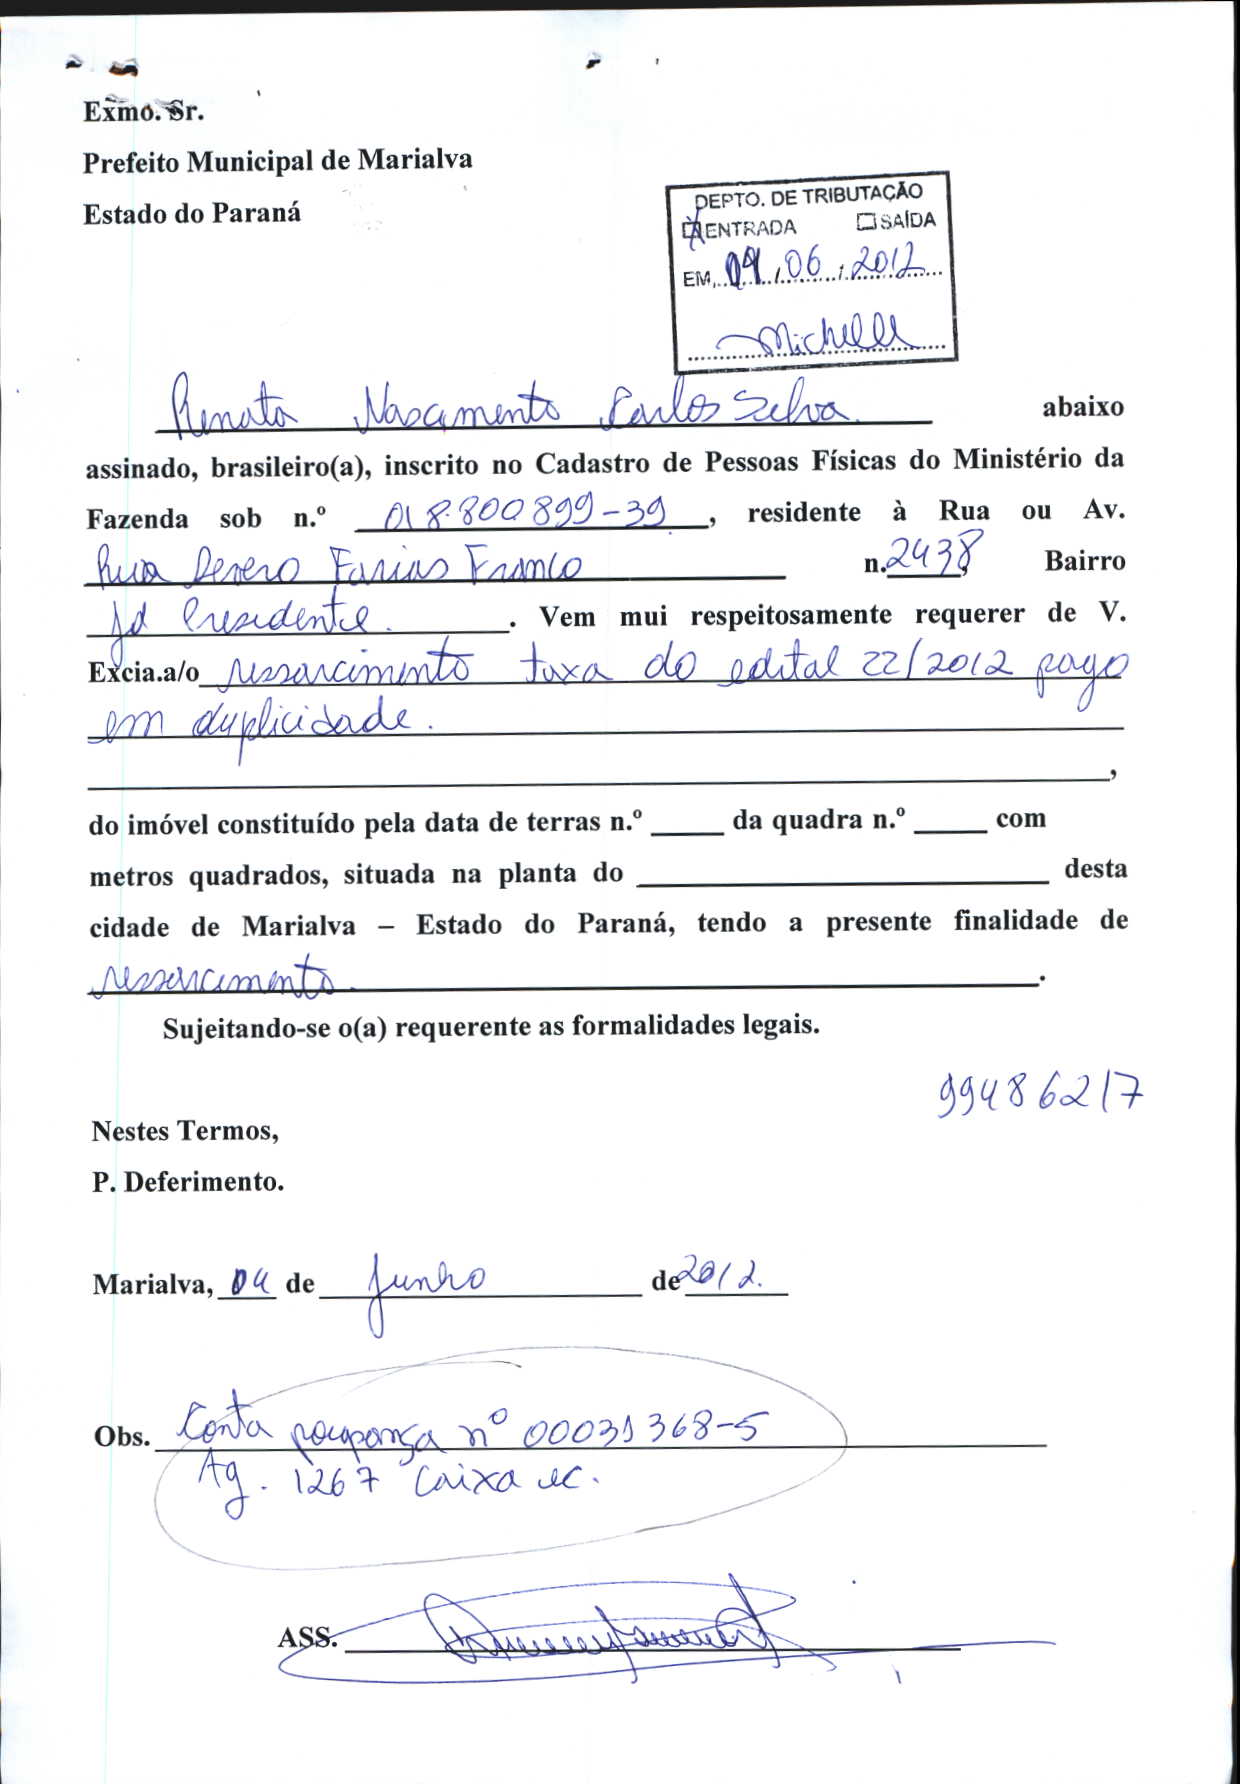 Exmo. Sr.
Prefeito Municipal de Marialva
Estado do Paraná
DEPTO. DE TRIBUTAÇÃO
ENTRADA SAÍDA
EM, 04 / 06 / 2012
Michelle
Renata Nascimento Carlos Silva. abaixo
assinado, brasileiro(a), inscrito no Cadastro de Pessoas Físicas do Ministério da
Fazenda sob n.º 018.800899-39, residente à Rua ou Av.
Rua Farias Franco n. 2438, Bairro
Jd Presidente. . Vem mui respeitosamente requerer de V.
Excia.a/o ressarcimento taxa do edital 22/2012 pago
em duplicidade.
,
do imóvel constituído pela data de terras n.º _____ da quadra n.º _____ com
metros quadrados, situada na planta do _____ desta
cidade de Marialva – Estado do Paraná, tendo a presente finalidade de
ressarcimento. .
Sujeitando-se o(a) requerente as formalidades legais.
99486217
Nestes Termos,
P. Deferimento.
Marialva, 04 de Junho de 2012.
Obs. Conta poupança nº 00031368-5
Ag. 1267 Caixa ec.
ASS.